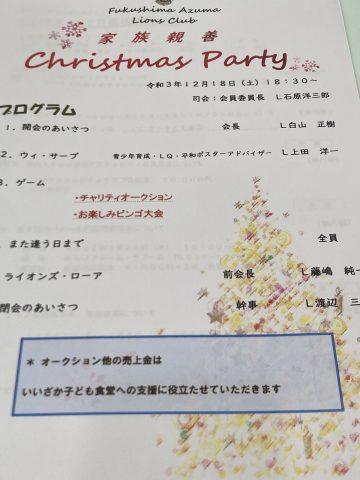 Fukushima Azuma
Lions Club
家族親善
Christmas Party
令和3年12月18日（土）18：30～
司会：会員委員長　L石原洋三郎
プログラム
1．開会のあいさつ　会長　L白山　正樹
2．ウィ・サーブ　青少年育成・LQ・平和ポスターアドバイザー　L上田　洋一
3．ゲーム
・チャリティオークション
・お楽しみビンゴ大会
また逢う日まで　全員
ライオンズ・ローア　前会長　L藤嶋　純一
閉会のあいさつ　幹事　L渡辺　三
＊ オークション他の売上金は
いいざか子ども食堂への支援に役立たせていただきます